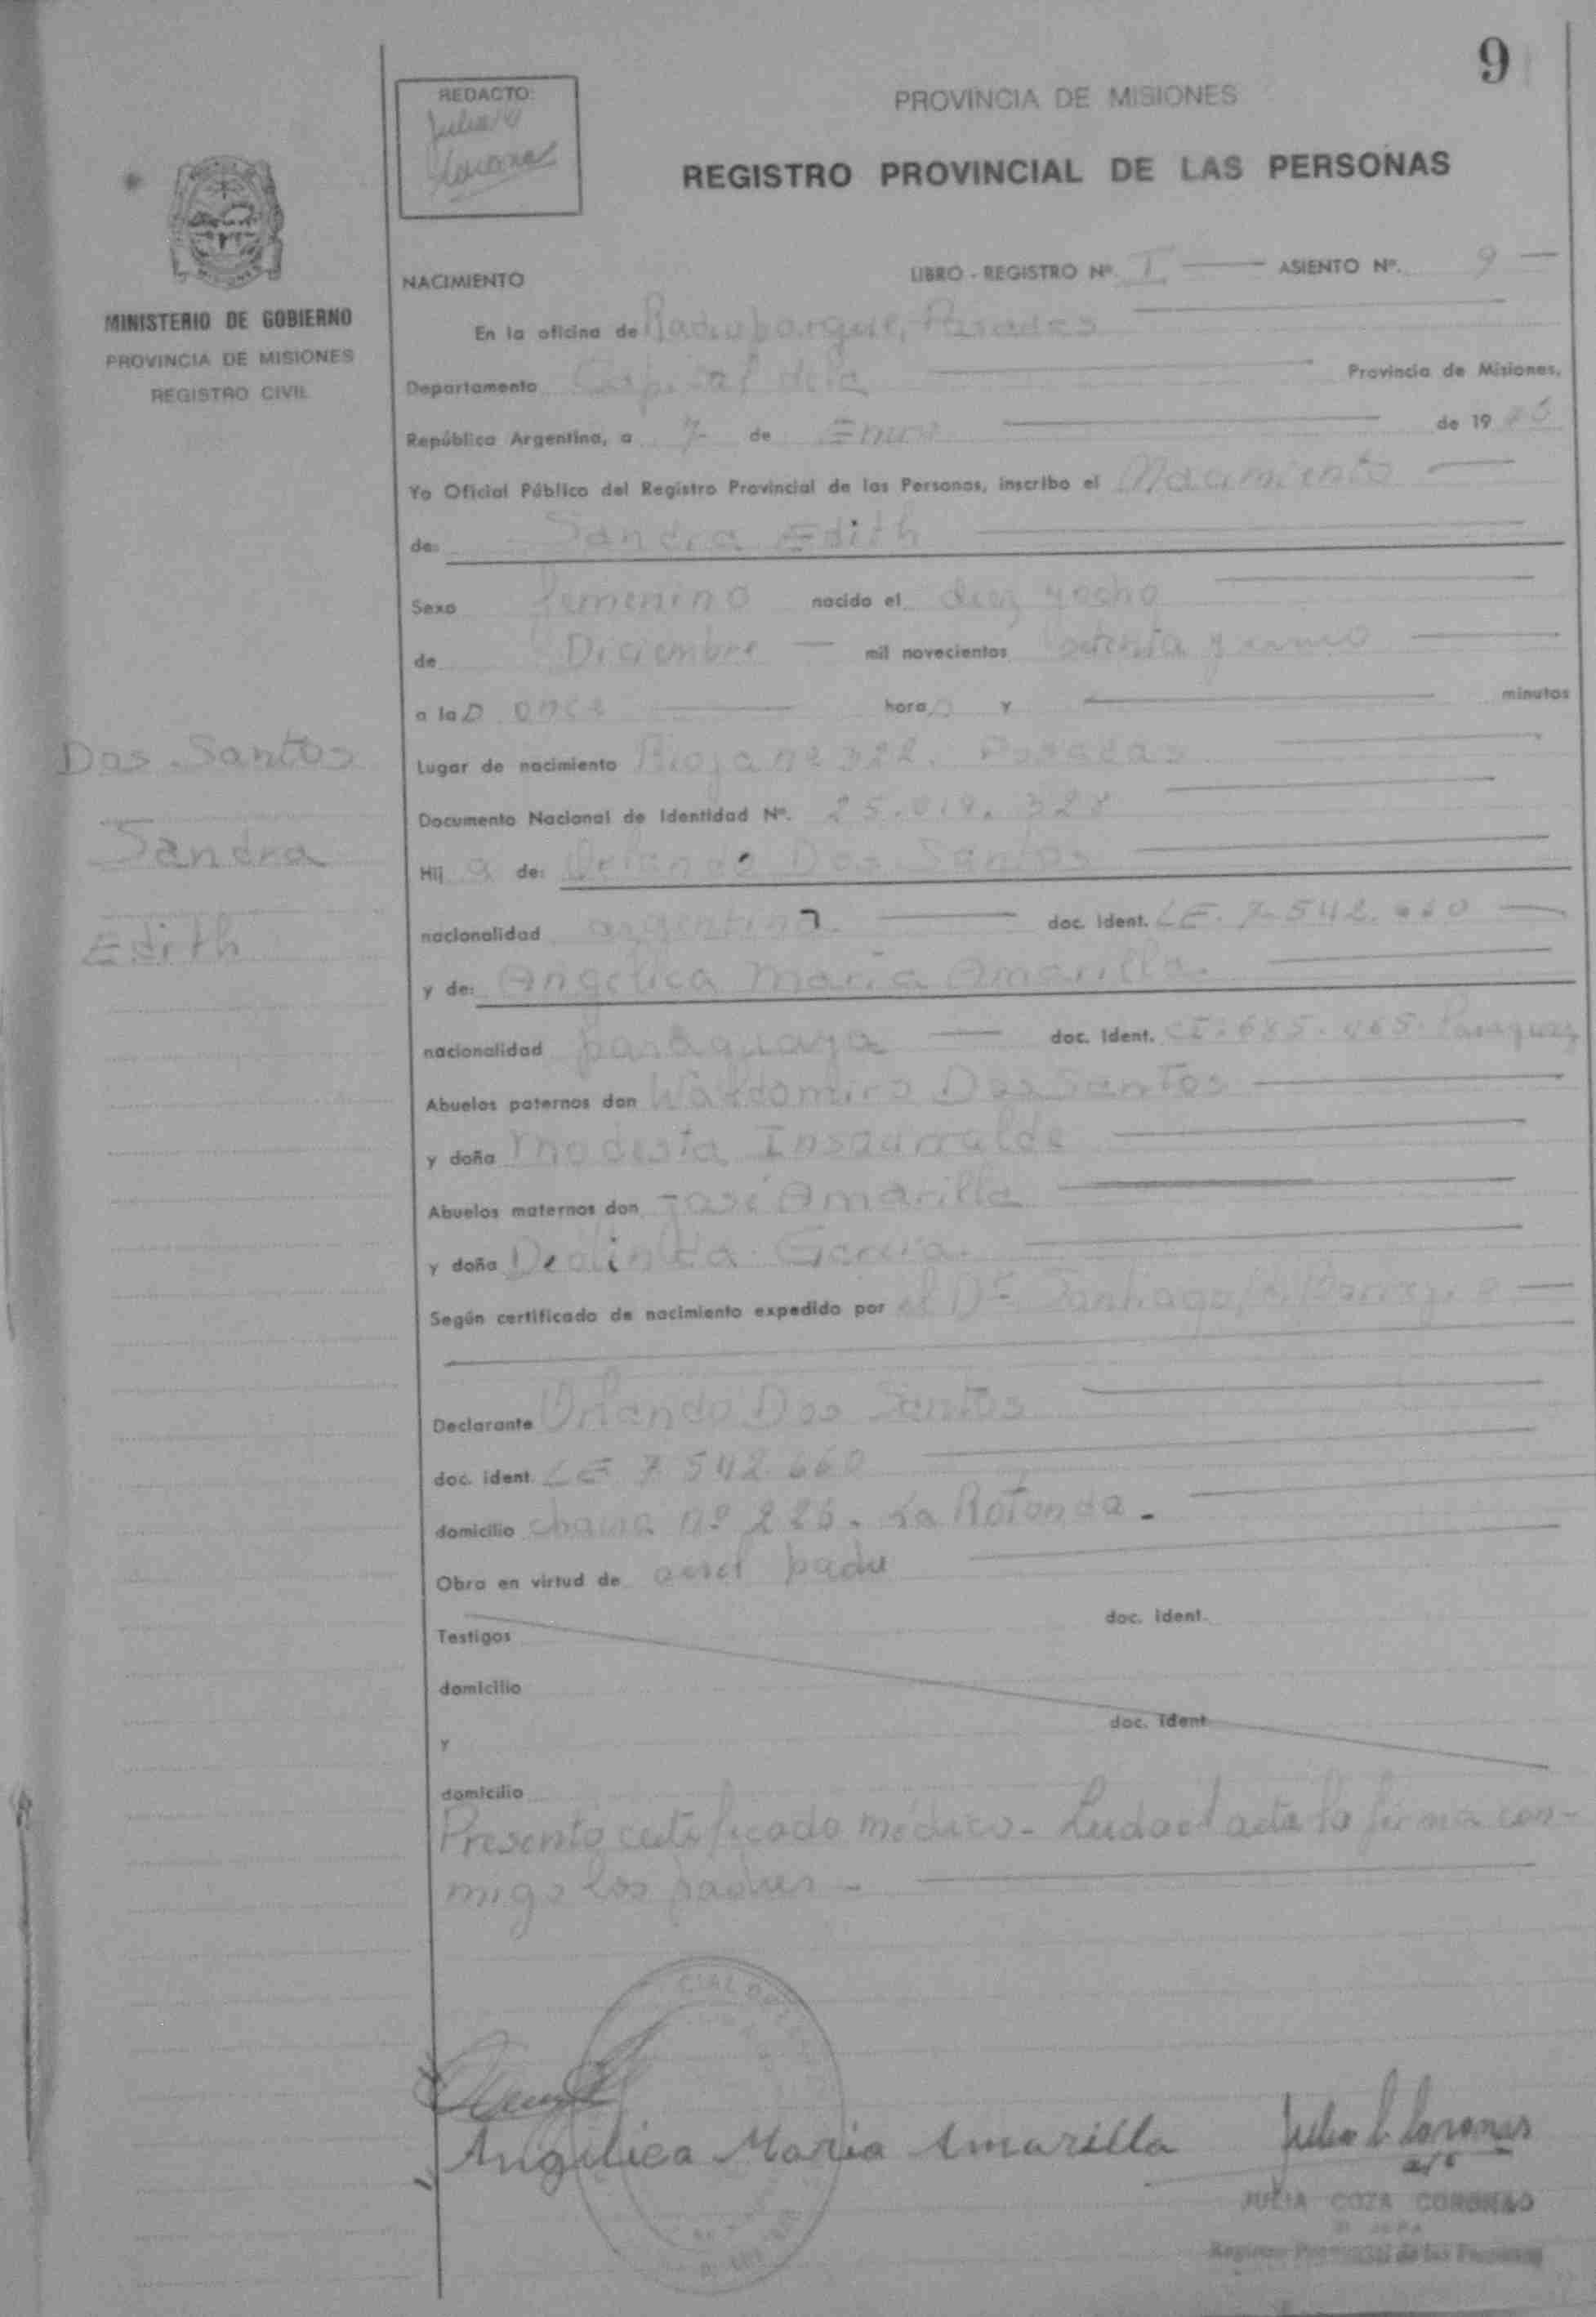 9
REDACTO:
PROVINCIA DE MISIONES
REGISTRO PROVINCIAL DE LAS PERSONAS
MINISTERIO DE GOBIERNO
PROVINCIA DE MISIONES
REGISTRO CIVIL
NACIMIENTO LIBRO - REGISTRO Nº I ASIENTO Nº. 9
En la oficina de Posadas
Departamento Capital de la Provincia de Misiones,
República Argentina, a 7 de Enero de 19
Yo Oficial Público del Registro Provincial de las Personas, inscribo el Nacimiento
de: Sandra Edith
Sexo femenino nacido el diez y ocho
de Diciembre mil novecientos setenta y
a la s once hora s y minutos
Dos Santos
Sandra
Edith
Lugar de nacimiento Rioja nº 322. Posadas
Documento Nacional de Identidad Nº. 328
Hij a de: Orlando Dos Santos
nacionalidad argentina doc. ident. LE. 7.542.660
y de: Angélica María Amarilla.
nacionalidad paraguaya doc. ident. CI. Paraguay
Abuelos paternos don Waldomiro Dos Santos
y doña Modesta Insaurralde
Abuelos maternos don José Amarilla
y doña Deolinda Garcia.
Según certificado de nacimiento expedido por el Dr. Santiago
Declarante Orlando Dos Santos
doc. ident. LE 7.542.660
domicilio chacra nº 226. La Rotonda.
Obra en virtud de ser el padre
Testigos doc. ident.
domicilio
y doc. ident.
domicilio
Presento certificado médico - Leida el acta la firma con-
migo los padres -
Angélica Maria Amarilla
JULIA COZA
Registro Provincial de las Personas